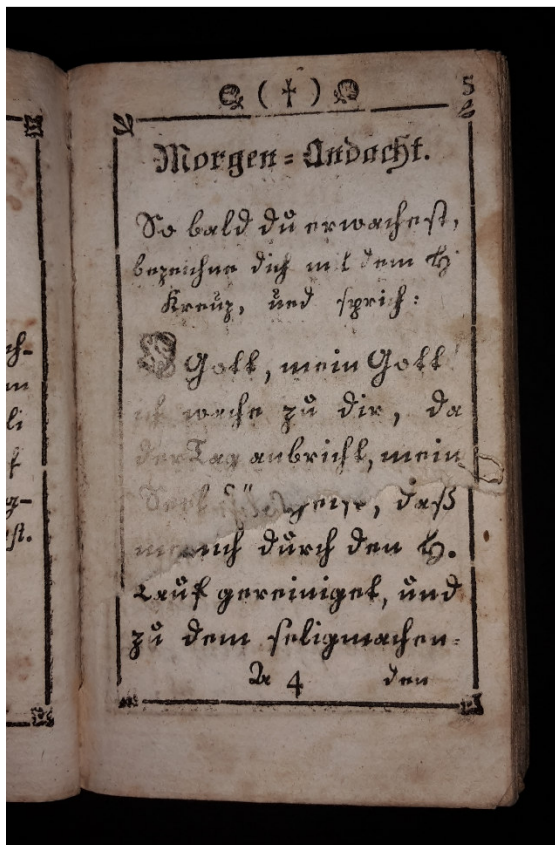 ( † ) 5
Morgen=Andacht.
So bald du erwachest,
bezeichne dich mit dem H
Kreuz, und sprich:
O Gott, mein Gott
ich wache zu dir, da
der Tag anbricht, mein
Seel daß
mich durch den H.
Tauf gereiniget, und
zu dem seligmachen=
A 4 den